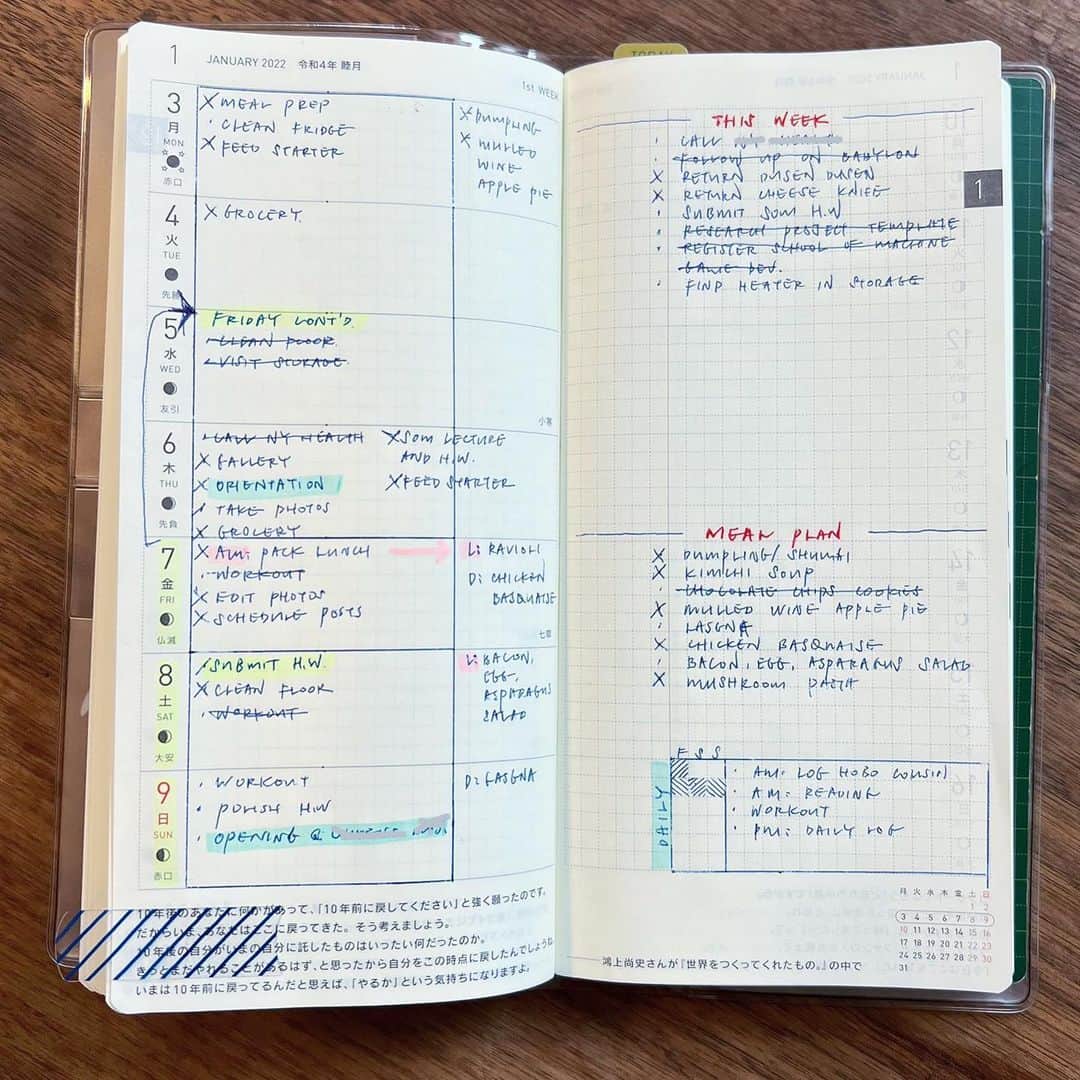 1 JANUARY 2022 令和4年 睦月
1st WEEK
3
月
MON
赤口
X MEAL PREP
· CLEAN FRIDGE
X FEED STARTER
X DUMPLING
X MULLED
WINE
APPLE PIE
4
火
TUE
先勝
X GROCERY
5
水
WED
友引
FRIDAY CONT'D.
· CLEAN FLOOR
· VISIT STORAGE
小寒
6
木
THU
先負
· CALL NY HEALTH
X GALLERY
X ORIENTATION
TAKE PHOTOS
X GROCERY
X SOM LECTURE
AND H.W.
X FEED STARTER
7
金
FRI
仏滅
X AM: PACK LUNCH
· WORKOUT
X EDIT PHOTOS
X SCHEDULE POSTS
L: RAVIOLI
D: CHICKEN
BASQUAISE
七草
8
土
SAT
大安
/ SUBMIT H.W.
X CLEAN FLOOR
· WORKOUT
L: BACON,
EGG,
ASPARAGUS
SALAD
9
日
SUN
赤口
· WORKOUT
· POLISH H.W
· OPENING @
D: LASGNA
10年後のあなたに何かがあって、「10年前に戻してください」と強く願ったのです。
だからいま、あなたはここに戻ってきた。そう考えましょう。
10年後の自分がいまの自分に託したものはいったい何だったのか。
きっとまだやれることがあるはず、と思ったから自分をこの時点に戻したんでしょうね。
いまは10年前に戻ってるんだと思えば、「やるか」という気持ちになりますよ。
TODAY
1
THIS WEEK
· CALL
· FOLLOW UP ON BABYLON
X RETURN DUSEN DUSEN
X RETURN CHEESE KNIFE
· SUBMIT SOM H.W
· RESEARCH PROJECT TEMPLATE
· REGISTER SCHOOL OF MACHINE
GAME DEV.
· FIND HEATER IN STORAGE
MEAN PLAN
X DUMPLING/ SHUMAI
X KIMCHI SOUP
· CHOCOLATE CHIPS COOKIES
X MULLED WINE APPLE PIE
· LASGNA
X CHICKEN BASQUAISE
· BACON, EGG, ASPARAGUS SALAD
X MUSHROOM PASTA
F S S
DAILY
· AM: LOG HOBO COUSIN
· AM: READING
· WORKOUT
· PM: DAILY LOG
月 火 水 木 金 土 日
1 2
3 4 5 6 7 8 9
10 11 12 13 14 15 16
17 18 19 20 21 22 23
24 25 26 27 28 29 30
31
鴻上尚史さんが『世界をつくってくれたもの。』の中で